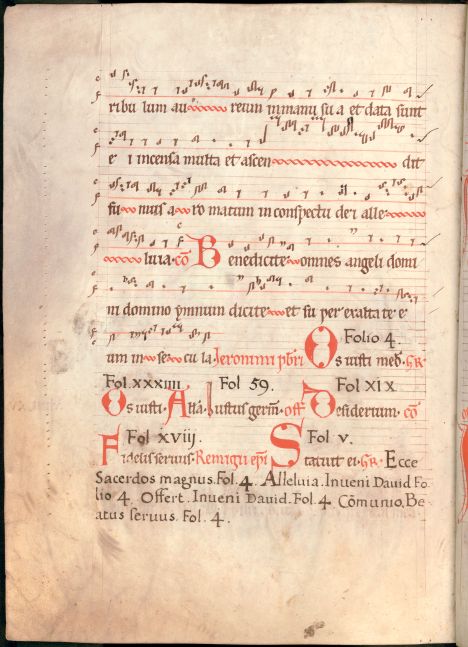 ribu lum au reum in manu su a et data sunt
e i incensa multa et ascen dit
fu mus a ro matum in conspectu de i alle
luia. co Benedicite omnes angeli domi
ni domino ymnum dicite et su per exalta te e
um in se cu la. Ieronimi pbri Folio 4. Os iusti med. GR
Fol. xxxiiii. Fol 59. Fol XIX
Os iusti. Alla. Iustus germ. off Desiderium. co
Fol xviij. Fol v.
Fidelis seruus. Remigii epi Statuit ei. GR. Ecce
Sacerdos magnus. Fol. 4. Alleluia. Inueni Dauid Fo
lio 4. Offert. Inueni Dauid. Fol. 4. Cõmunio. Be
atus seruus. Fol. 4.